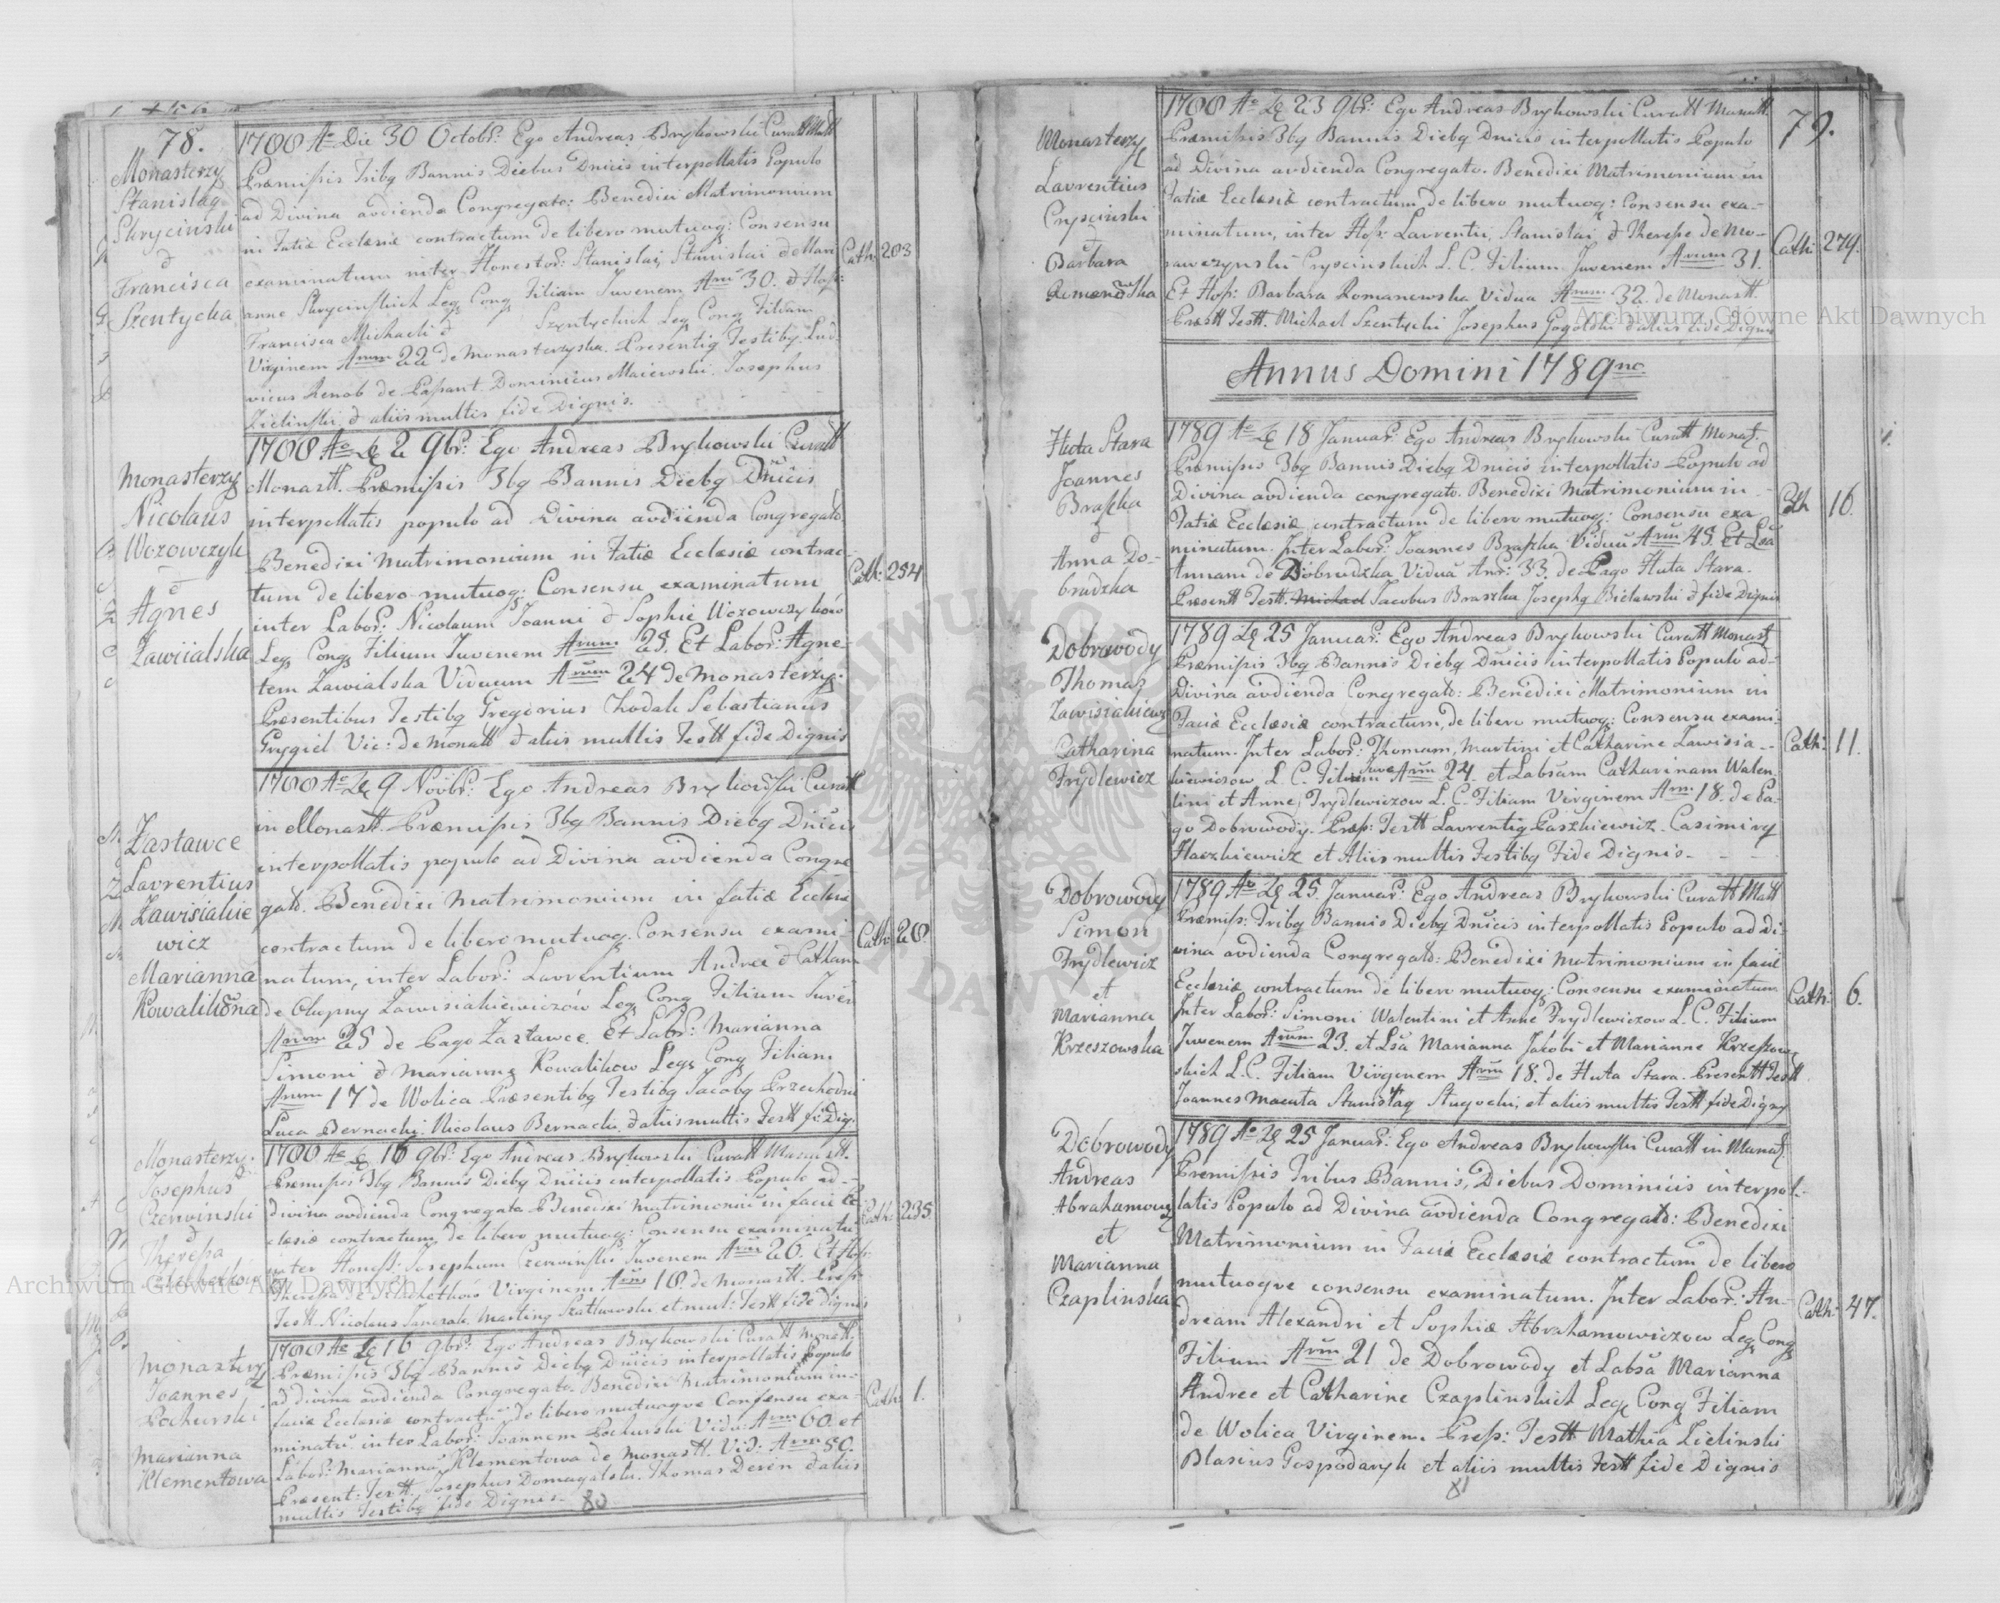 78.
Monasterzy
Stanislaq
Skrycinski
&
Francisca
Szentycka
1788 Ao Die 30 Octobr: Ego Andreas Brykowski Curatt Mott
Præmissis Tribq Bannis Diebus Dnicis interpollatis Populo
ad Divina avdienda Congregato: Benedixi Matrimonium
in Fatiæ Ecclesiæ contractum de libero mutuoq: Consensu
examinatum inter Honestor: Stanislai, Stanislai & Mari
anne Skrycinskich Leg Conq Filium Juvenem Arum 30. & Hosp:
Francisca Michaeli & Szentyckich Leg Conq Filiam
Virginem Arum 22 de Monasterzyska. Presentiq Testibq Lud
vicus Renob de Passant Dominicus Maiewski. Josephus
Zielinski & aliis multis fide Dignis.
Cath: 203
Monasterzy
Nicolaus
Wozowczyk
&
Agnes
Zawiialska
1788 Ao D 2 9br: Ego Andreas Brykowski Curatt
Monastt. Præmissis 3bq Bannis Diebq Dnicis
interpollatis populo ad Divina avdienda Congregato.
Benedixi Matrimonium in Fatiæ Ecclesiæ contrac-
tum de libero mutuoq: Consensu examinatum
inter Labor: Nicolaum Joanni & Sophie Wozowczykow
Leg Conq Filium Juvenem Arum 25. Et Labor: Agne-
tem Zawialska Viduam Arum 24 de Monasterzy:
Præsentibus Testibq Gregorius Chodak Sebastianus
Grygiel Vic: de Monastt & aliis multis Testt fide Dignis
Cath: 254
Zastawce
Lavrentius
Zawisiakie
wicz
Marianna
Kowalikowna
1788 Ao D 9 Novbr: Ego Andreas Brykowski Curatt
in Monastt. Præmissis 3bq Bannis Diebq Dnicis
interpollatis populo ad Divina avdienda Congre
gato. Benedixi Matrimonium in fatiæ Ecclesiæ
contractum de libero mutuoq. Consensu exami-
natum, inter Labor: Lavrentium Andree & Cathari
de Chupny Zawisiakiewiczów Leg Conq Filium Juven
Arum 25 de Pago Zastawce. Et Labor: Marianna
Simoni & Marianne Kowalikow Leg Conq Filiam
Arum 17 de Wolica Præsentibq Testibq Jacobq Przechodni
Luca Bernacki. Nicolaus Bernacki. & aliis multis Testt fi Dig.
Cath: 20.
Monasterzy.
Josephus
Czerwinski
&
Theressa
1788 Ao D 16 9br: Ego Andreas Brykowski Curatt Monastt.
Præmissis 3bq Bannis Diebq Dnicis interpollatis Populo ad-
divina avdienda Congregato Benedixi Matrimonium in facie Ec
clesiæ contractum, de libero mutuoq: Consensu examinatu
inter Honest: Josephum Czerwinski Juvenem Arum 26. Et Hosp
Virginem Arum 18. de Monastt. Pres:
Testt. Nicolaus Janczak. Martinq Szatkowski et mul: Testt fide Dignis
Cath: 235
Monastery
Joannes
Pochurski
Marianna
Klementowa
1788 Ao D 16 9br: Ego Andreas Brykowski Curatt Monastt.
Præmissis 3bq Bannis Diebq Dnicis interpollatis Populo
ad divina avdienda Congregato. Benedixi Matrimonium in
faciæ Ecclesiæ contractu de libero mutuoqve Consensu exa-
minatu. inter Labor: Joannem Pochurski Vidu. Arum 60. et
Labor: Marianna Klementowa de Monastt. Vid: Arum 50.
Præsent: Testt. Josephus Domagalski. Thomas Deren & aliis
multis Testibq fide Dignis.
Cath: 1.
80
79.
Monasterzy
Lavrentius
Cryscinski
&
Barbara
Romanowska
1788 Ao D 23 9br: Ego Andreas Brykowski Curatt Monastt.
Præmissis 3bq Bannis Diebq Dnicis interpollatis Populo
ad Divina avdienda Congregato. Benedixi Matrimonium in
Fatiæ Ecclesiæ contractum, de libero mutuoq: Consensu exa-
minatum, inter Hosp: Lavrentii, Stanislai & Theresse de Mo-
rawczynski Cryscinskich L. C. Filium Juvenem Arum 31.
Et Hosp: Barbara Romanowska Vidua Arum 32. de Monastt.
Præstt Testt. Michael Szentycki Josephus Gogolski & aliis fide Dignis
Cath: 279.
Annus Domini 1789no.
Huta Stara
Joannes
Braszka
&
Anna Do-
brudzka
1789 Ao D 18 Januar: Ego Andreas Brykowski Curatt Monast.
Præmissis 3bq Bannis Diebq Dnicis interpollatis Populo ad
Divina avdienda congregato. Benedixi Matrimonium in
Fatiæ Ecclesiæ contractum de libero mutuoq: Consensu exa
minatum. Inter Labor: Joannes Braszka Viduu Arum 45. Et Lsa
Annam de Dobrudzka Viduā Anr: 33. de Pago Huta Stara.
Præsentt Testt. Michael Jacobus Braszka Josephq Bielawski & fide Dignis
Cath 16.
Dobrowody
Thomas
Zawisiakiewicz
Catharina
Frydlewicz
1789 D 25 Januar: Ego Andreas Brykowski Curatt Monast
Præmissis 3bq Bannis Diebq Dnicis interpollatis Populo ad-
Divina avdienda Congregato: Benedixi Matrimonium in
Faciæ Ecclesiæ contractum, de libero mutuoq: Consensu exami-
natum. Inter Labor: Thomam, Martini et Catharine Zawisia-
kiewiczow L. C. Filium Juve Arum 24. et Labsam Catharinam Walen
tini et Anne, Frydlewiczow L. C. Filiam Virginem Arum 18. de Pa-
go Dobrowody. Præs: Testt Lavrentiq Paszkiewicz. Casimirq
Haczkiewicz et Aliis multis Testibq Fide Dignis.
Cath: 11.
Dobrowody
Simon
Frydlewicz
et
Marianna
Krzeszowska
1789 Ao D 25. Januar: Ego Andreas Brykowski Curatt Matt
Præmiss: Tribq Bannis Diebq Dnicis interpollatis Populo ad Di-
vina avdienda Congregato: Benedixi Matrimonium in facie
Ecclesiæ contractum de libero mutuoq: Consensu examinatum
Inter Labor: Simoni Walentini et Anne Frydlewiczow L. C. Filium
Juvenem Arum 23. et Lsā Marianna Jakobi et Marianne Krzeszow
skich L. C. Filiam Virginem Arum 18. de Huta Stara. Presentt Testt
Joannes Macuta Stanislaq Slugocki, et aliis multis Testt fide Dignis
Cath: 6.
Dobrowody
Andreas
Abrahamowicz
et
Marianna
Czaplinska
1789 Ao D 25 Januar: Ego Andreas Brykowski Curatt in Monast
Premissis Tribus Bannis, Diebus Dominicis interpol-
latis Populo ad Divina avdienda Congregato: Benedixi
Matrimonium in Faciæ Ecclesiæ contractum de libero
mutuoqve consensu examinatum. Inter Labor: An-
dream Alexandri et Sophiæ Abrahamowiczow Leg Conq
Filium Arum 21 de Dobrowody et Labsā Marianna
Andree et Catharine Czaplinskich Leg Conq Filiam
de Wolica Virginem. Press: Testt Mathia Zielinski
Blasius Gospodaryk et aliis multis Testt fide Dignis
Cath: 47.
Archiwum Główne Akt Dawnych
Archiwum Główne Akt Dawnych